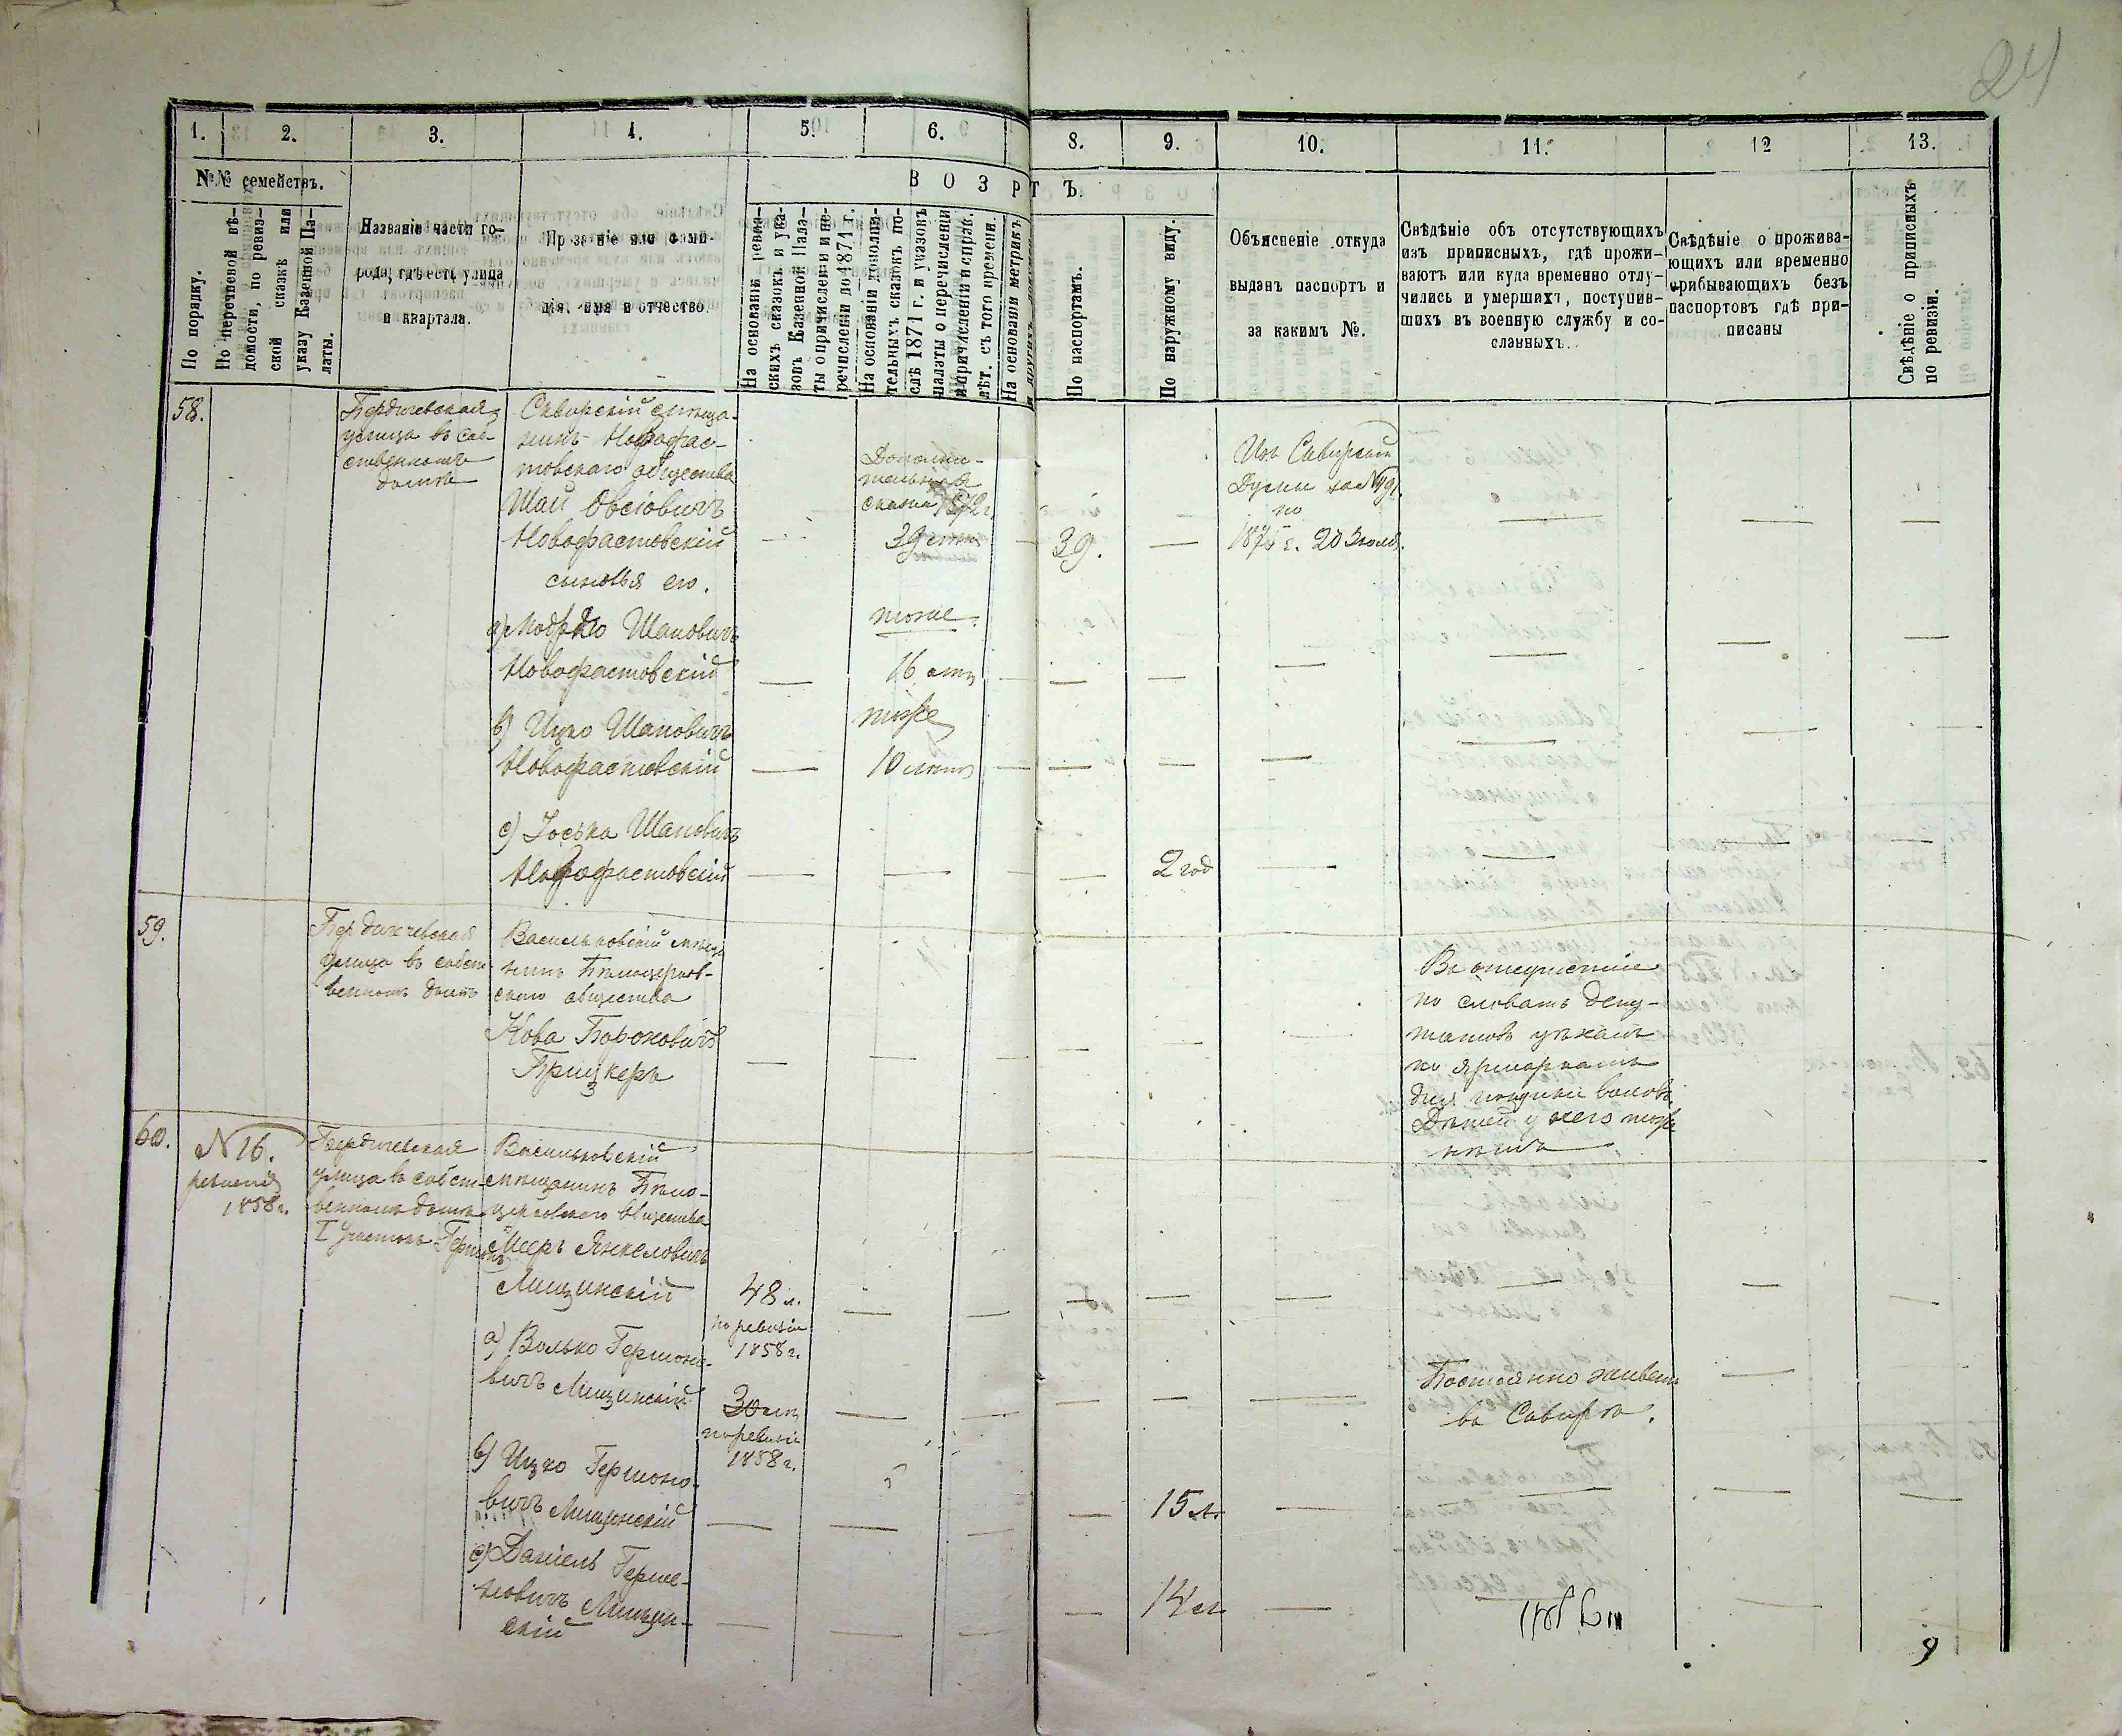 24
1. 2. 3. 4. 5. 6. 8. 9. 10. 11. 12 13.
№№ семействъ.
В О З Р Т Ъ.
По порядку.
По перечневой вѣ-
домости, по ревиз-
ской сказкѣ или
указу Казенной Па-
латы.
Названіе части го-
рода, гдѣ есть улица
и квартала.
Прозваніе или фами-
лія, имя и отчество.
На основаніи ревиз-
скихъ сказокъ и ука-
зовъ Казенной Пала-
ты о причисленіи и пе-
речисленіи до 1871 г.
На основаніи дополни-
тельныхъ сказокъ по-
слѣ 1871 г. и указовъ
палаты о перечисленіи
и причисленіи и справ.
лѣт. съ того времени.
На основаніи метрикъ
По паспортамъ.
По наружному виду.
Объясненіе откуда
выданъ паспортъ и
за какимъ №.
Свѣдѣніе объ отсутствующихъ
изъ приписныхъ, гдѣ прожи-
ваютъ или куда временно отлу-
чились и умершихъ, поступив-
шихъ въ военную службу и со-
сланныхъ.
Свѣдѣніе о прожива-
ющихъ или временно
прибывающихъ безъ
паспортовъ гдѣ при-
писаны
Свѣдѣніе о приписныхъ
по ревизіи.
58.
Бердичевская
улица въ соб-
ственномъ
домѣ
Сквирскій мѣща-
нинъ Новофас-
товскаго общества
Шай Овсіовичъ
Новофастовскій
Дополни-
тельная
сказка 1872 г.
39 лѣтъ
39.
Изъ Сквирской
Думы за №
по
1875 г. 20 Іюля.
сыновья его.
а) Мордко Шаповичъ
Новофастовскій
тоже
16 лѣтъ
b) Ицко Шаповичъ
Новофастовскій
тоже
10 лѣтъ
c) Іоська Шаповичъ
Новофастовскій
2 год
59.
Бердичевская
улица въ собст-
венномъ домѣ
Васильковскій мѣща-
нинъ Бѣлоцерков-
скаго общества
Кова Бороховичъ
Прицкеръ
Въ отсутствіе
по словамъ депу-
татовъ уѣхалъ
по ярмаркамъ
для покупки воловъ.
Дѣтей у него тоже
нѣтъ
60.
N 16.
ревизія
1858 г.
Бердичевская
улица въ собст-
венномъ домѣ
I Участокъ
Васильковскій
мѣщанинъ Бѣло-
церковскаго общества
Гершонъ Мееръ Янкеловичъ
Лищинскій
48 л.
по ревизіи
1858 г.
а) Волько Гершоно-
вичъ Лищинскій
3 лѣтъ
по ревизіи
1858 г.
Постоянно живетъ
въ Сквирѣ.
b) Ицко Гершоно-
вичъ Лищинскій
15 л.
c) Даніель Герше-
новичъ Лищин-
скій
14 л.